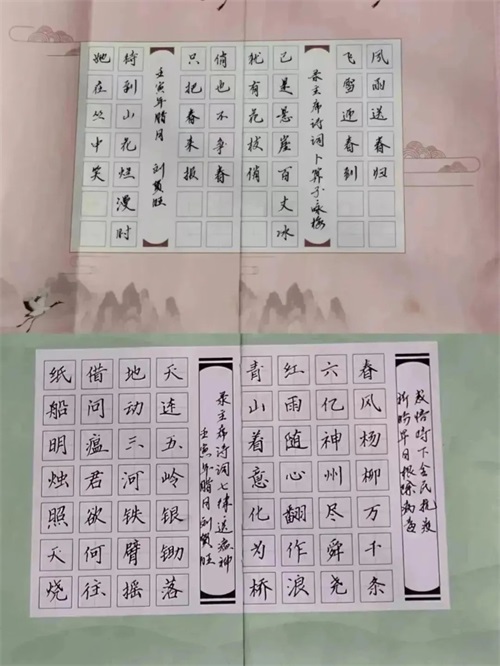 风雨送春归
飞雪迎春到
录主席诗词卜算子咏梅
已是悬崖百丈冰
犹有花枝俏
俏也不争春
只把春来报
壬寅年腊月 刘贺旺
待到山花烂漫时
她在丛中笑
时下全民抗疫
祈盼早日根除病
春风杨柳万千条
六亿神州尽舜尧
红雨随心翻作浪
青山着意化为桥
录主席诗词七律送瘟神
壬寅年腊月刘贺旺
天连五岭银锄落
地动三河铁臂摇
借问瘟君欲何往
纸船明烛照天烧